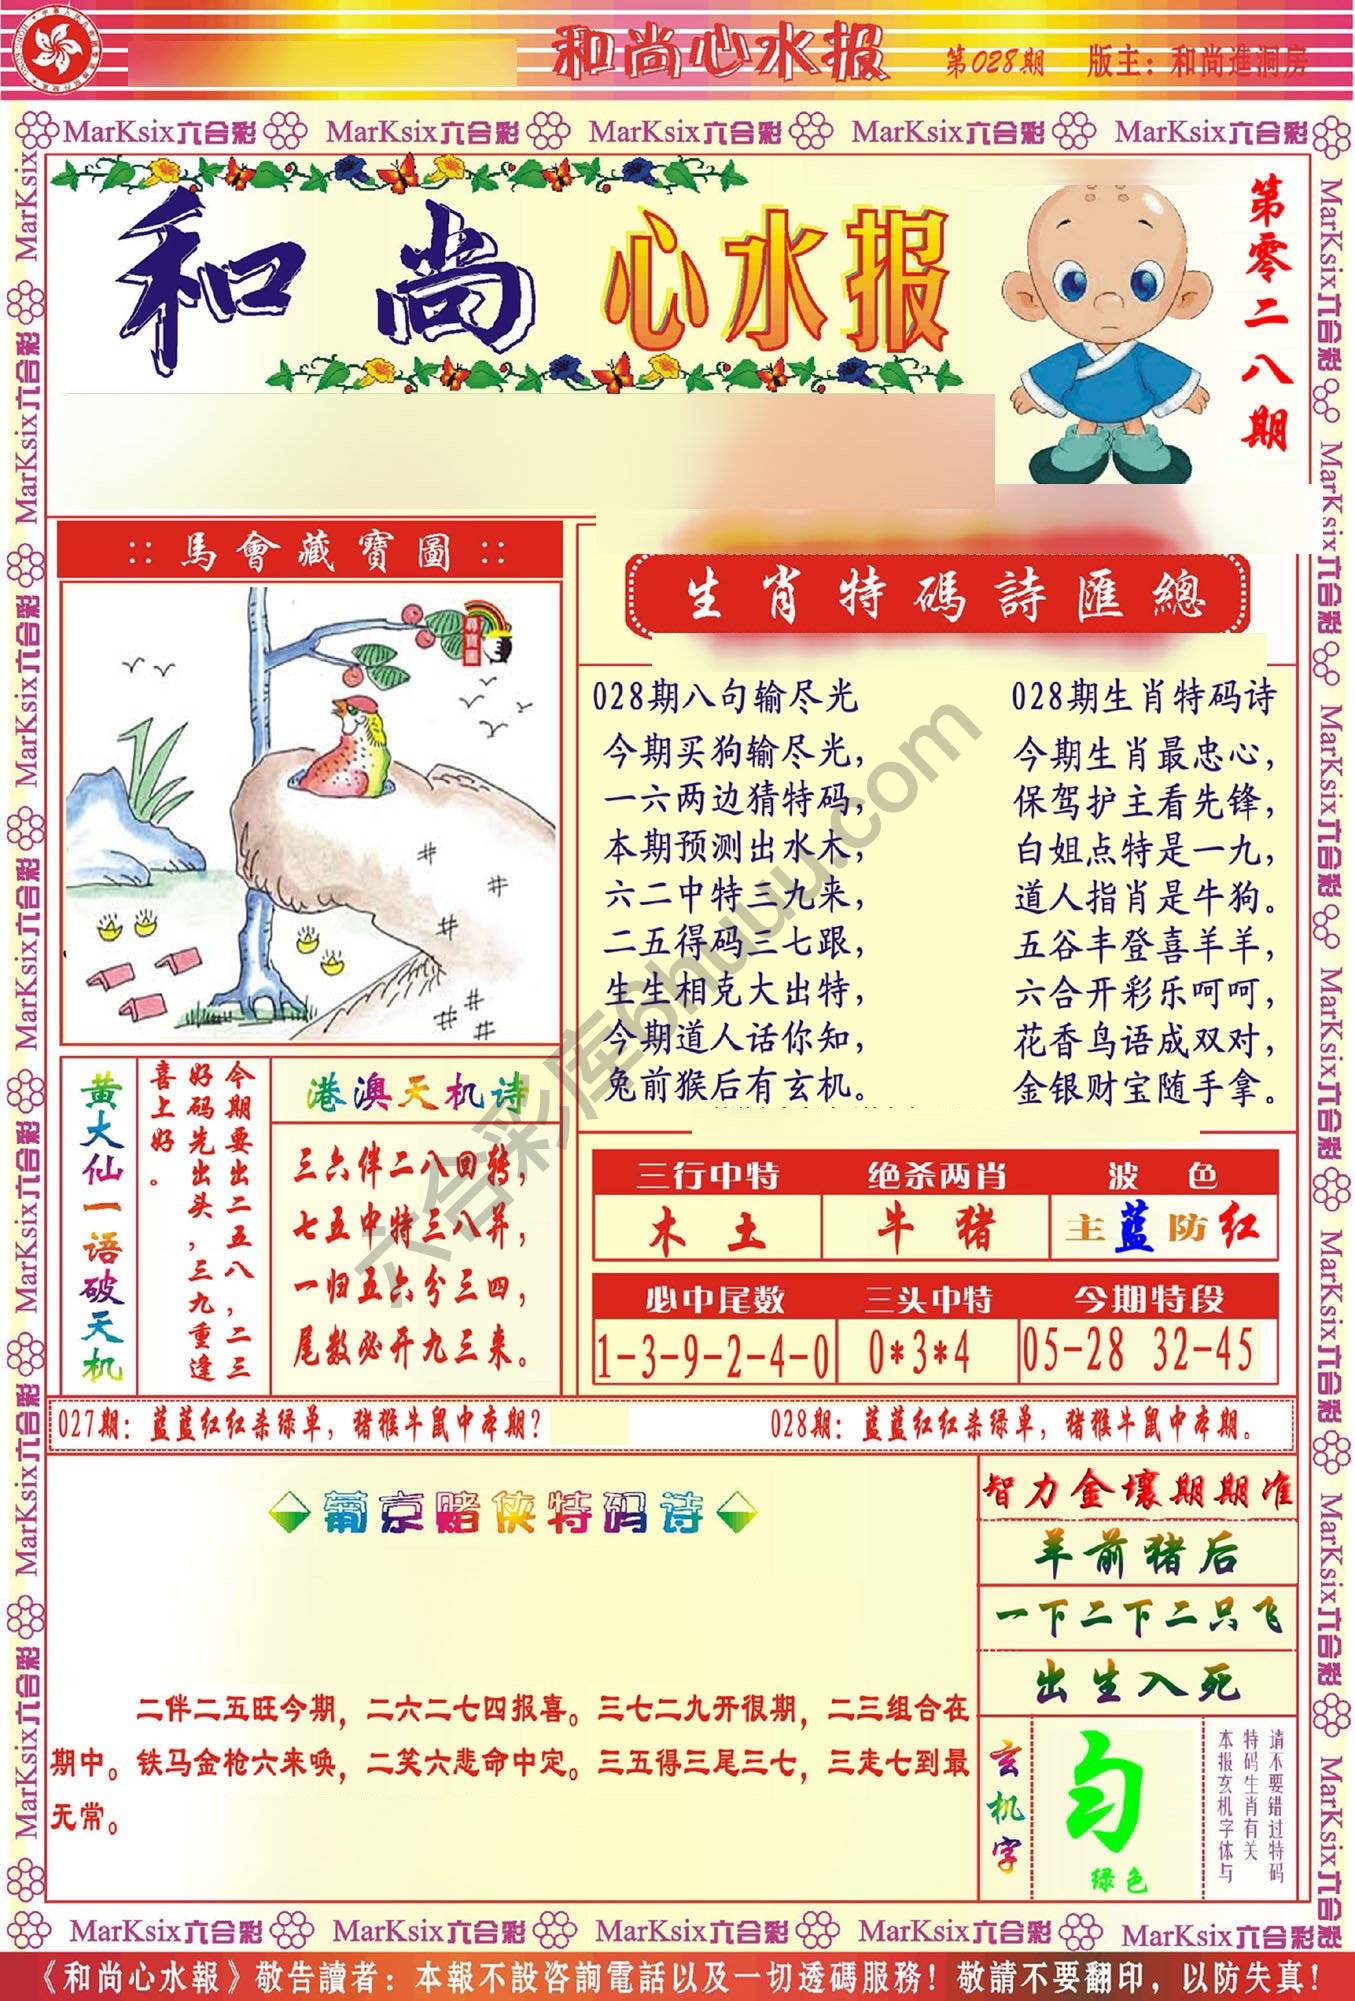 和尚心水报
第028期
版主：和尚進洞房
MarKsix六合彩 MarKsix六合彩 MarKsix六合彩 MarKsix六合彩 MarKsix六合彩
和尚心水报
第零二八期
::馬會藏寶圖::
尋寶圖
生肖特碼詩匯總
028期八句输尽光
今期买狗输尽光，
一六两边猜特码，
本期预测出水木，
六二中特三九来，
二五得码三七跟，
生生相克大出特，
今期道人话你知，
兔前猴后有玄机。
028期生肖特码诗
今期生肖最忠心，
保驾护主看先锋，
白姐点特是一九，
道人指肖是牛狗。
五谷丰登喜羊羊，
六合开彩乐呵呵，
花香鸟语成双对，
金银财宝随手拿。
黄大仙一语破天机
今期要出二五八，二三
好码先出头，三九重逢
喜上好。
港澳天机诗
三六伴二八回转，
七五中特三八并，
一归五六分三四，
尾数必开九三来。
三行中特 绝杀两肖 波色
木土 牛猪 主蓝防红
必中尾数 三头中特 今期特段
1-3-9-2-4-0 0*3*4 05-28 32-45
027期：蓝蓝红红杀绿单，猪猴牛鼠中本期？
028期：蓝蓝红红杀绿单，猪猴牛鼠中本期。
葡京赌侠特码诗
二伴二五旺今期，二六二七四报喜。三七二九开很期，二三组合在
期中。铁马金枪六来唤，二笑六悲命中定。三五得三尾三七，三走七到最
无常。
智力金壤期期准
羊前猪后
一下二下二只飞
出生入死
玄机字
匀
绿色
请不要错过特码
特码生肖有关
本报玄机字体与
六合彩库6huuu.com
MarKsix六合彩 MarKsix六合彩 MarKsix六合彩 MarKsix六合彩 MarKsix六合彩
《和尚心水報》敬告讀者：本報不設咨詢電話以及一切透碼服務！敬請不要翻印，以防失真！